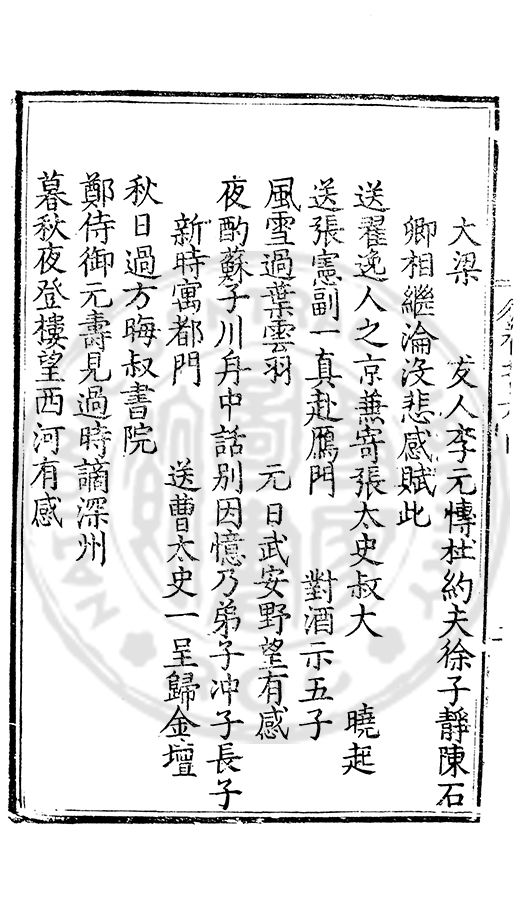 大梁　友人李元博杜約夫徐子靜陳石
卿相繼淪沒悲感賦此
送翟逸人之京兼寄張太史叔大　曉起
送張憲副一真赴鴈門　對酒示五子
風雪過葉雲羽　元日武安野望有感
夜酌蘇子川舟中話別因憶乃弟子冲子長子
新時寓都門　送曹太史一呈歸金壇
秋日過方晦叔書院
鄭侍御元壽見過時謫深州
暮秋夜登樓望西河有感